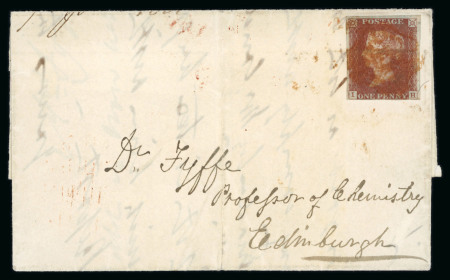 POSTAGE
ONE PENNY
Dr Fyffe
Professor of Chemistry
Edinburgh